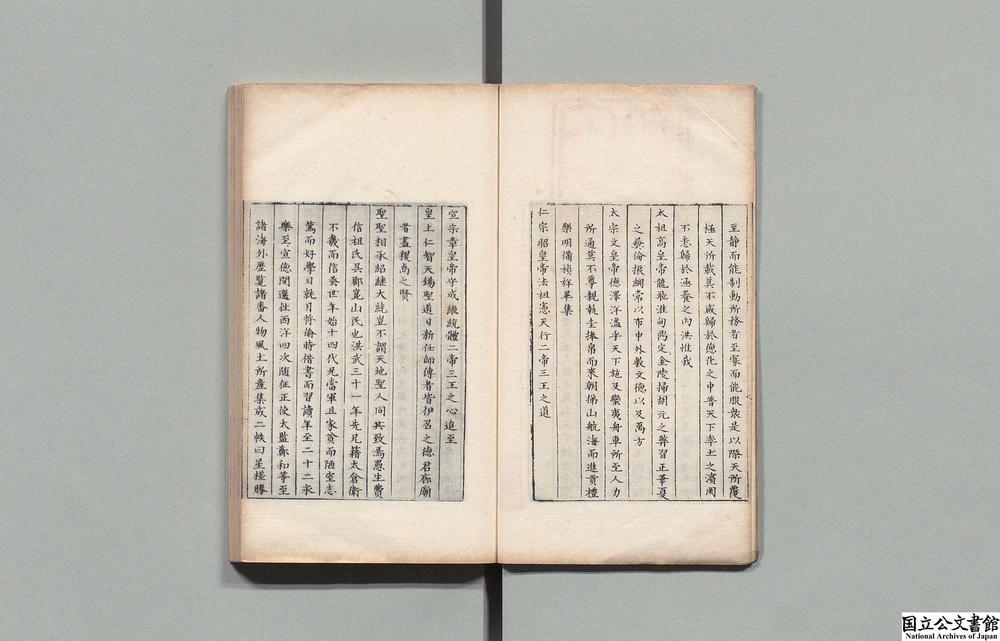 至静而能制動所務者至寡而能服衆是以際天所覆
極天所載莫不咸歸於德化之中普天下率土之濱罔
不悉歸於涵養之内洪惟我
太祖高皇帝龍飛淮甸鼎定金陵掃胡元之弊習正華夏
之彜倫振綱常以布中外敷文德以及萬方
太宗文皇帝德澤洋溢乎天下施及蠻夷舟車所至人力
所通莫不尊親執圭捧帛而來朝梯山航海而進貢禮
樂明備禎祥畢集
仁宗昭皇帝法祖憲天行二帝三王之道
宣宗章皇帝守成繼統體二帝三王之心追至
皇上仁智天錫聖道日新任師傅者皆伊召之德君廊廟
者盡稷卨之賢
聖聖相承紹繼大統豈不謂天地聖人同其致焉愚生費
信祖氏吴郡崑山民也洪武三十一年先兄籍太倉衛
不幾而信兗世年始十四代兄當軍且家貧而陋室志
篤而好學日就月將偷時借書而習讀年至二十二永
樂至宣德間選徃西洋四次隨征正使太監鄭和等至
諸海外歷覽諸番人物風土所產集成二帙曰星槎勝
国立公文書館
National Archives of Japan